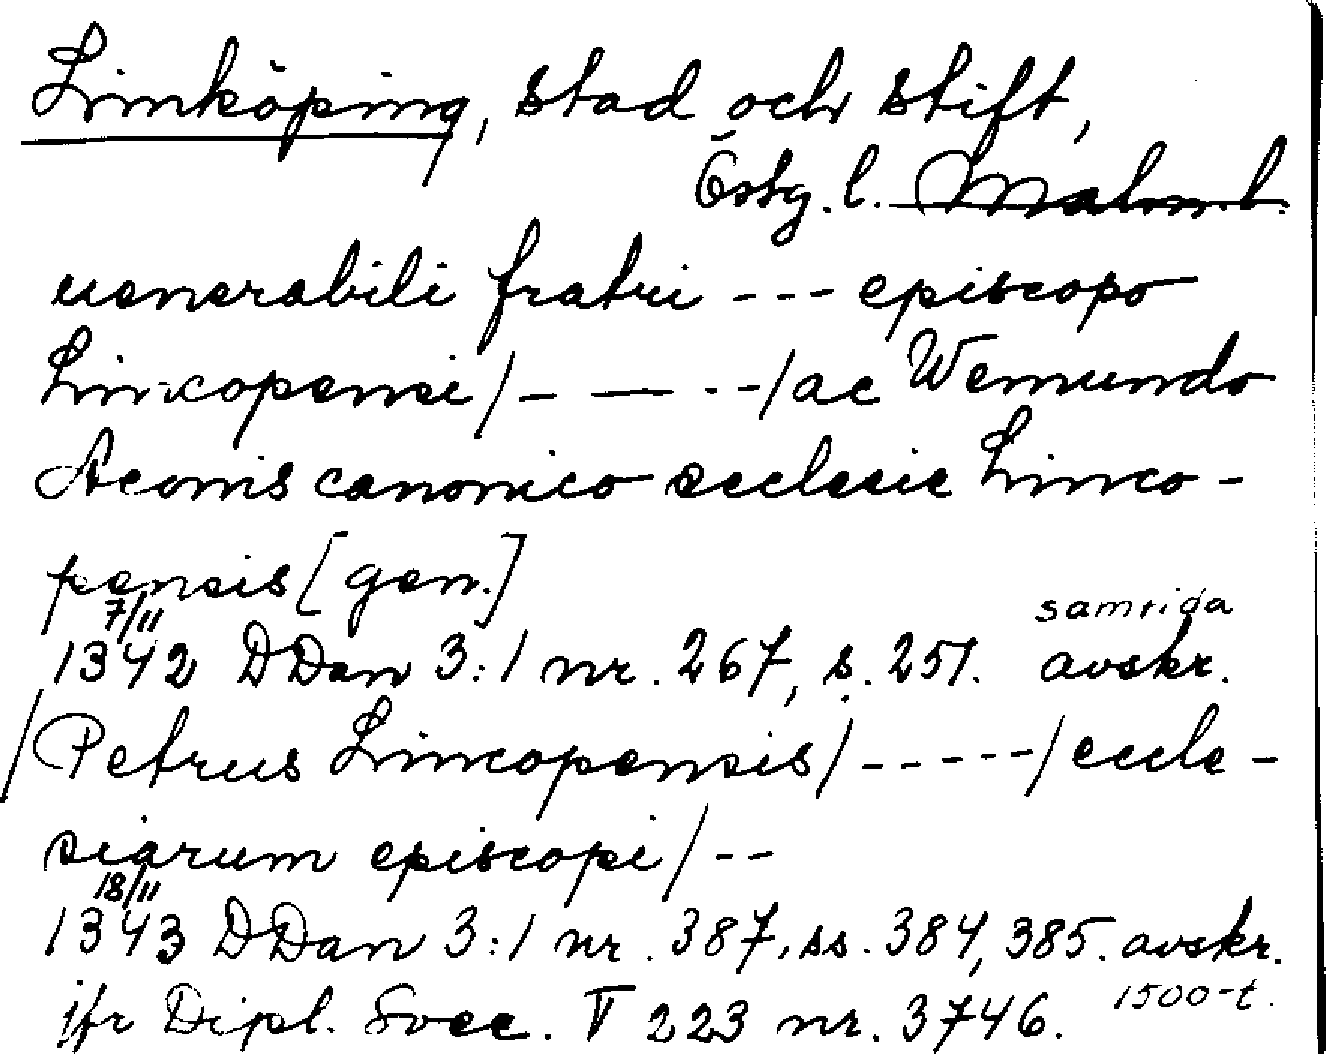 Linköping, stad och stift,
Östg. l. Malm. l.
uenerabili fratri --- episcopo
Lincopensi/- — --/ac Wemundo
Aconis canonico ecclesie Linco-
pensis [gen.]
7/11 samtida
1342 DDan 3:1 nr. 267, s. 251. avskr.
/Petrus Lincopensis/-----/eccle-
siarum episcopi/--
18/11
1343 DDan 3:1 nr. 387, ss. 384, 385. avskr.
jfr Dipl. Svec. V 223 nr. 3746. 1500-t.